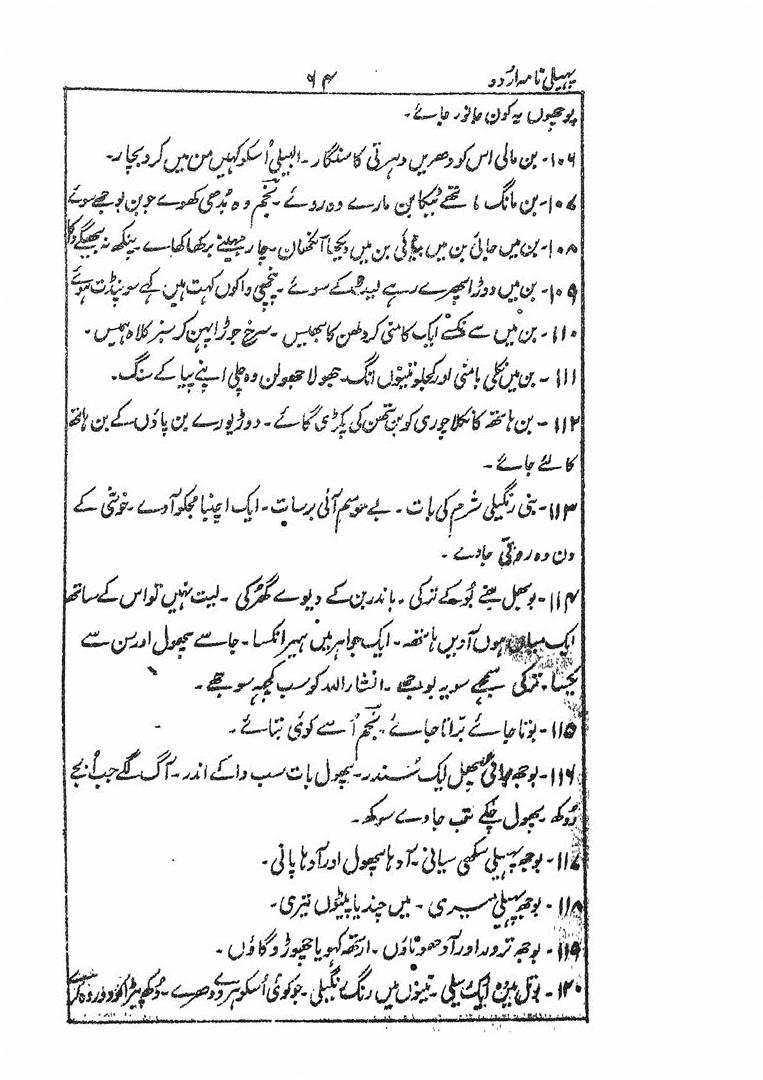 پہیلی نامہ اردو ۶۴
پوچھوں یہ کون جانور جائے۔
۱۰۶۔ بن مالی اس کو دھریں دہرتی کا سنگار۔ البیلی اُسکو کہیں من میں کر و بچار۔
۱۰۷۔ بن مانگ ماتھے ٹیکا بن مارے وہ روئے۔ نجم وہ بُدھی کھوے جو بن بوجھے سوئے
۱۰۸۔ بن میں جائی بن میں بن میں چار مہینے برکھا کھاے۔ پنکھ نہ بھیگے
۱۰۹۔ بن میں دوڑا پھرے رہے کے سوئے۔ پنچھی واکوں کہت ہیں کہے سو پنڈت ہوئے
۱۱۰۔ بن میں سے نکسے ایک کامنی کر دلھن کا بھیس۔ سرخ جوڑا پہن کر سبز کلاہ ہمیں۔
۱۱۱۔ بن میں نکلی بامنی اور تینوں انگ۔ جھولا جھولن وہ چلی اپنے پیا کے سنگ۔
۱۱۲۔ بن ہاتھ کا نکلا چوری کو بن تھن کی پکڑی گائے۔ دوڑیو رے بن پاؤں کے بن ہاتھ
کا لئے جائے۔
۱۱۳۔ بنی رنگیلی شرم کی بات۔ بے موسم آئی برسات۔ ایک اچنبا مجکو آوے۔ خوشی کے
دن وہ روتی جاوے۔
۱۱۴۔ بو کے ترکی۔ باندر بن کے دیوے گھڑکی۔ لیت نہیں تو اس کے ساتھ
ایک ہوں آویں ہاتھ۔ ایک جواہر میں ہیرا نکسا۔ جاسے پھول اور سن سے
ترکی سمجھے سو یہ بوجھے۔ انشاء اللہ کو سب کچھ سوجھے۔
۱۱۵۔ بوتا جائے برّاتا جائے۔ نجم اُسے کوئی بتائے۔
۱۱۶۔ بوجھ پھل ایک سُندر۔ پھول بات سب واکے اندر۔ آگ لگے جب اُپجے
رُوکھ۔ پھول چکے تب جاوے سوکھ۔
۱۱۷۔ بوجھ پہیلی سکھی سیانی۔ آدہا پھول اور آدہا پانی۔
۱۱۸۔ بوجھ پہیلی میری۔ میں چندیا پیٹوں تیری۔
۱۱۹۔ بوجھ تروور اور آدھو ناؤں۔ ارتھ کہو یا چھوڑو گاؤں۔
۱۲۰۔ ایک سیلی۔ تینوں میں رنگ رنگیلی۔ جو کوئی اُسکو سر دھرے۔ دُکھ